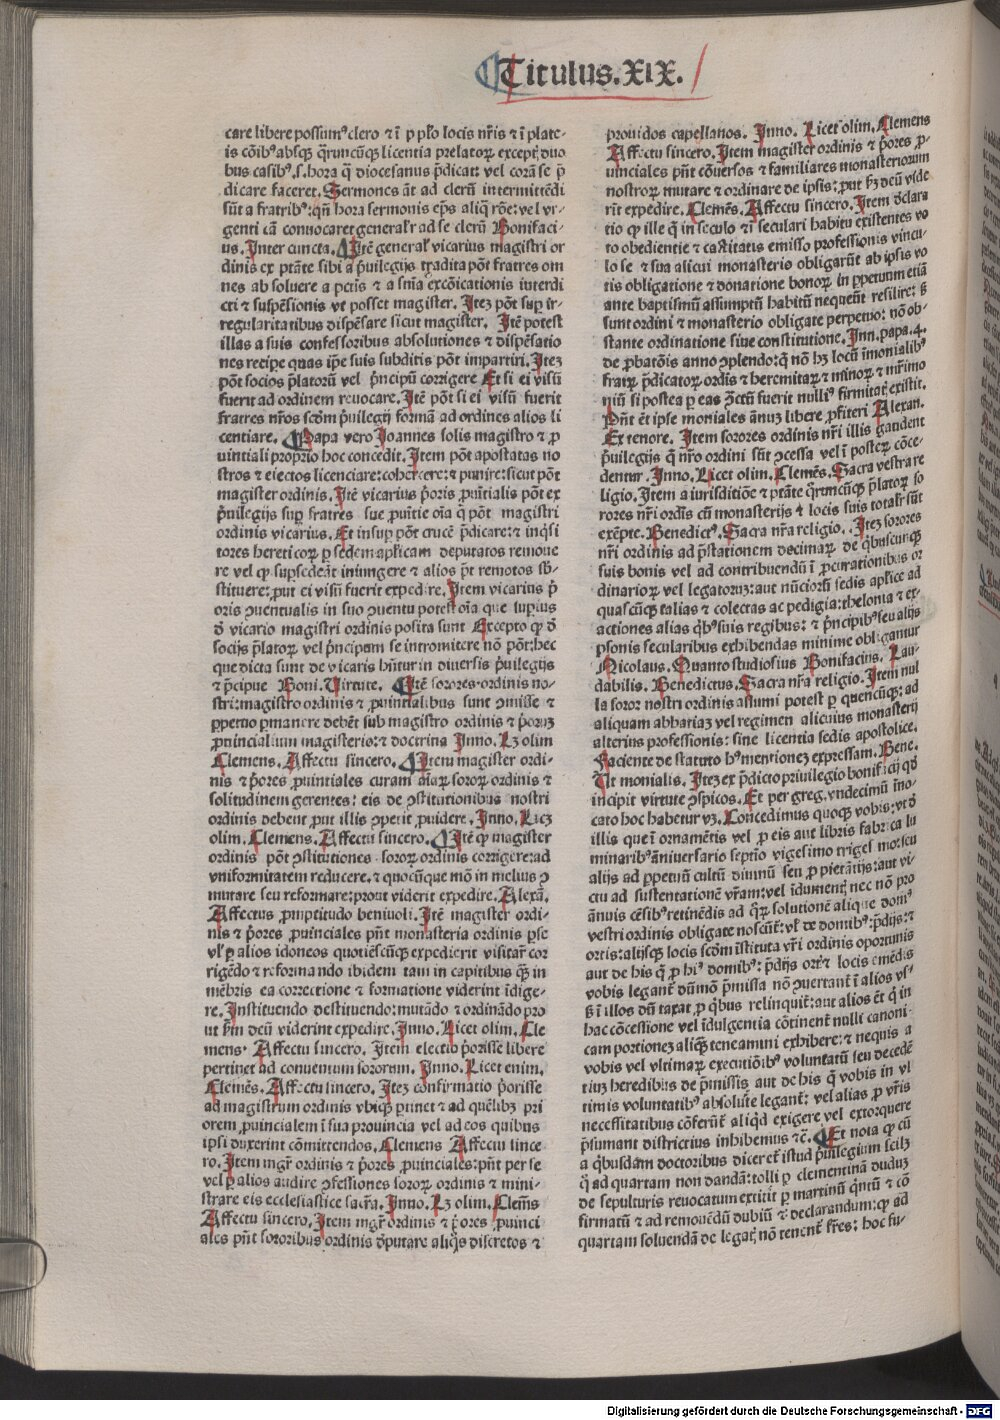 Titulus.XIX.
care libere possumꝰ clero ⁊ ī p̱ pl̄o locis nr̄is ⁊ ī plate-
is cōibꝰ absqꝫ q̄rūcūqꝫ licentia prelatoꝝ except; duo
bus casibꝰ .s. hora q̄ diocesanus p̄dicat: vel corā se p̄
dicare faceret. Sermones āt ad cleꝝ intermittēdi
sūt a fratribꝰ: qn̄ hora sermonis ep̄s aliq̄ rōe: vel vr-
genti cā conuocaret general'r ad se cleꝝ Bonifaci-
us. Inter cuncta. Itē general' vicarius magistri or
dinis ex ptāte sibi a p̄uilegijs tradita pōt fratres om
nes absoluere a pctis ⁊ a sn̄ia excōicationis interdi
cti ⁊ suspēsionis vt posset magister. Itez pōt sup̱ ir-
regularitatibus dispēsare sicut magister. Itē potest
illas a suis confessoribus absolutiones ⁊ dispēsatio
nes recipe quas ip̄e suis subditis pōt impartiri. Itez
pōt socios p̄latoꝝ vel p̄ncipū corrigere Et si ei visū
fuerit ad ordinem reuocare. Itē pōt si ei visū fuerit
fratres nr̄os scd̄m p̄uilegij formā ad ordines alios li
centiare. Papa vero Joannes solis magistro ⁊ ꝓ
uintiali proprio hoc concedit. Item pōt apostatas no
stros ⁊ eiectos licenciare: cohercere: ⁊ punire: sicut pōt
magister ordinis. Itē vicarius p̄oris ꝓuītialis pōt ex
p̄uilegijs sup̱ fratres sue ꝓuītie oīa q̄ pōt magistri
ordinis vicarius. Et insup̱ pōt crucē p̄dicare: ⁊ inq̇si
tores hereticoꝝ p̱ sedem ap̄licam deputatos remoue
re vel ꝙ sup̱sedeāt iniungere ⁊ alios p̄t remotos sb̄-
stituere: prout ei visū fuerit expedire. Item vicarius p̄
oris ꝯuentualis in suo ꝯuentu potest oīa que supius
d̄ vicario magistri ordinis posita sunt Excepto ꝙ d̄
socijs p̄latoꝝ vel p̄ncipum se intromittere nō pōt: hec
que dicta sunt de vicaris hn̄tur in diuersis p̄uilegijs
⁊ p̄cipue Boni. Virtute. Itē sorores ordinis no-
stri: magistro ordinis ⁊ ꝓuincialibus sunt ꝯmisse ⁊
p̱petuo p̱manere debēt sub magistro ordinis ⁊ p̄oꝝ
ꝓuincialium magisterio: ⁊ doctrina Inno. Lꝫ olim
Clemens. Affectu sincero. Item magister ordi-
nis ⁊ p̄ores ꝓuintiales curam oīaꝝ soroꝝ ordinis ⁊
solitudinem gerentes: eis de ꝯstitutionibus nostri
ordinis debent put illis ꝯpetit ꝓuidere. Inno. Licꝫ
olim. Clemens. Affectu sincero. Itē ꝙ magister
ordinis pōt ꝯstitutiones soroꝝ ordinis corrigere: ad
vniformitatem reducere. ⁊ quocūque mō in melius ꝯ
mutare seu reformare: prout viderit expedire. Alexā.
Affectus ꝓmptitudo beniuoli. Itē magister ordi-
nis ⁊ p̄ores ꝓuinciales pn̄t monasteria ordinis p̱se
vl' p̱ alios idoneos quotiēscūqꝫ expedierit visitar̄ cor
rigēdo ⁊ reformando ibidem tam in capitibus q̄ꝫ in
mēbris ea correctione ⁊ formatione viderint īdige-
re. Instituendo destituendo: mutādo ⁊ ordināndo pro
ut fm̄ deū viderint expedire. Inno. Licet olim. Cle
mens. Affectu sincero. Item electio p̄orisse libere
pertinet ad conuentum sororum. Inno. Licet enim.
Clemēs. Affectu sincero. Itez confirmatio p̄orisse
ad magistrum ordinis vbiqꝫ p̱tinet ⁊ ad quēlibꝫ pri
orem ꝓuincialem ī sua prouincia vel ad eos quibus
ipsi duxerint cōmittendos. Clemens Affectu since
ro. Item mgr̄ ordinis ⁊ p̄ores ꝓuinciales: pn̄t per se
vel p̱ alios audire ꝯfessiones soroꝝ ordinis ⁊ mini-
strare eis ecclesiastice sacr̄a. Inno. Lꝫ olim. Clem̄s
Affectu sincero. Item mgr̄ ordinis ⁊ p̄ores ꝓuinci
ales pn̄t sororibus ordinis d̄putare aliq̄s discretos ⁊
prouidos capellanos. Inno. Licet olim. Clemens
Affectu sincero. Item magister ordinis ⁊ p̄ores ꝓ-
uinciales pn̄t cōuersos ⁊ familiares monasteriorum
nostroꝝ mutare ⁊ ordinare de ipsis: prout fm̄ deū vide
rīt expedire. Clemēs. Affectu sincero. Item d̄clara
tio ꝙ ille q̄ in seculo ⁊ ī seculari habitu existentes vo
to obedientie ⁊ castitatis emisso professionis vincu-
lo se ⁊ sua alicui monasterio obligarūt ab ipsis vo
tis obligatione ⁊ donatione bonoꝝ in p̱petuum etiā
ante baptismū assumptū habitū nequeūt resilire: ß
sunt ordini ⁊ monasterio obligate perpetuo: nō ob-
stante ordinatione siue constitutione. Inn. papa. 4.
de ꝓbatōis anno ꝯplendo: q̄ nō hꝫ locū ī monialibꝰ
fratꝝ p̄dicatoꝝ ordīs ⁊ heremitaꝝ ⁊ minoꝝ ⁊ mr̄imo
niū si postea p̱ eas ꝯtctū fuerit nulliꝰ firmitat; existit.
Pn̄t ēt ipse moniales ānuꝫ libere ꝓfiteri Alexan.
Ex tenore. Item sorores ordinis nr̄i illis gaudent
p̄uilegijs q̄ nr̄o ordini sūt ꝯcessa vel ī posteꝝ cōce-
dentur. Inno. Licet olim. Clemēs. Sacra vestra re
ligio. Item a iurisditiōe ⁊ ptāte q̄rūcūqꝫ p̄latoꝝ so
rores nr̄i ordīs cū monasterijs ⁊ locis suis total'r sūt
exēpte. Benedictꝰ. Sacra nr̄a religio. Itez sorores
nr̄i ordinis ad p̄stationem decimaꝝ de q̇buscunqꝫ
suis bonis vel ad contribuendū ī ꝓcurationibus or
dinarioꝝ vel legatoruꝫ: aut nūcioꝝ sedis ap̄lice ad
quascūqꝫ talias ⁊ colectas ac pedigia: thelonia ⁊ ex-
actiones alias q̇bꝰsuis regibus: ⁊ p̄ncipibꝰ seu alijs
p̱sonis secularibus exhibendas minime obligantur
Nicolaus. Quanto studiosius Bonifacius. Lau-
dabilis. Benedictus. Sacra nr̄a religio. Item nul
la soror nostri ordinis assumi potest p̱ quencūqꝫ: ad
aliquam abbatiaꝫ vel regimen alicuius monasterij
alterius professionis: sine licentia sedis apostolice.
Faciente de statuto hꝰ mentionez expressam. Bene.
Et monialis. Itez ex p̄dicto priuilegio bonifacij qd̄
incipit virtute ꝯspicos. Et per greg. vndecimū īno-
cato hoc habetur vꝫ. Concedimus quoqꝫ vobis: vt d̄
illis que ī ornamētis vel ꝓ eis aut libris fabrica lu
minaribꝰ āniuersario septīo vigesimo trigesīmo: seu
alijs ad p̱petuū cultū diuinū seu ꝓ pietātijs: aut vi
ctu ad sustentationē vr̄am: vel īdument; nec nō pro
ānuis cēsibꝰ retinēdis ad q̄ꝝ solutionē alique domꝰ
vestri ordinis obligate noscūt̄: vl' de domibꝰ: p̄dijs: ⁊
ortis: alijsqꝫ locis scd̄m īstituta vr̄i ordinis oportunis
aut de his q̄ ꝓ hiꝰ domibꝰ: p̄dijs ort; ⁊ locis emēdis
vobis legant̄ dūmō p̄missa nō ꝯuertant̄ ī alios vsꝰ
ß ī illos dū taxat ꝓ q̇bus relinquīt̄: aut alios ēt q̄ in
hac cōcessione vel īdulgentia cōtinent̄ nulli canoni-
cam portionez aliq̄ꝫ teneamini exhibere: ⁊ nequis a
vobis vel vltimaꝝ executiōibꝰ voluntatū seu decedē
tiuꝫ heredibus de p̄missis aut de his q̄ vobis in vl
timis voluntatibꝰ absolute legant̄: vel alias ꝓ vr̄is
necessitatibus cōferūt̄ aliq̇d exigere vel extorquere
p̄sumant districtius inhibemus ⁊c̄. Et nota ꝙ cū
a q̇busdam doctoribus diceret̄ istud p̄uilegium scilꝫ
q̄ ad quartam non dandā: tolli p̱ clementinā dudū
de sepulturis reuocatum extitit p̱ martinū q̄ntū ⁊ cō
firmatū ⁊ ad remouēdū dubiū ⁊ declarandum: ꝙ ad
quartam soluendā de legat; nō tenent̄ fr̄es: hoc fu-
Digitalisierung gefördert durch die Deutsche Forschungsgemeinschaft - DFG